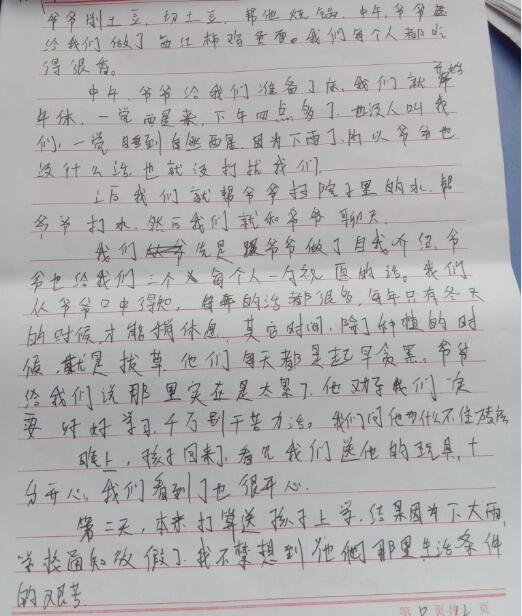 爷爷削土豆,切土豆,帮他烧锅,中午,爷爷
给我们做了西红柿鸡蛋面。我们每个人都吃
得很香。
中午,爷爷给我们准备了床,我们就开始
午休,一觉醒来,下午四点多了,也没人叫我
们,一觉睡到自然醒,因为下雨了,所以爷爷也
没什么活,也就没打扰我们。
之后我们就帮爷爷扫院子里的水,帮
爷爷打水,然后我们就和爷爷聊天。
我们先是跟爷爷做了自我介绍,爷
爷也给我们三个每个人一句祝愿的话。我们
从爷爷口中得知,每年的活都很多,每年只有冬天
的时候才能稍休息,其它时间,除了种植的时
候,就是拔草,他们每天都是起早贪黑。爷爷
给我们说那里实在是太累了,他劝导我们一定
要好好学习,千万别干苦力活。我们问他为什么不住
晚上,孩子回来了,看见我们送他的玩具,十
分开心,我们看到了也很开心。
第二天,本来打算送孩子上学,结果因为下大雨,
学校通知放假了,我不禁想到他们那里生活条件
的艰苦。
第 页共12页